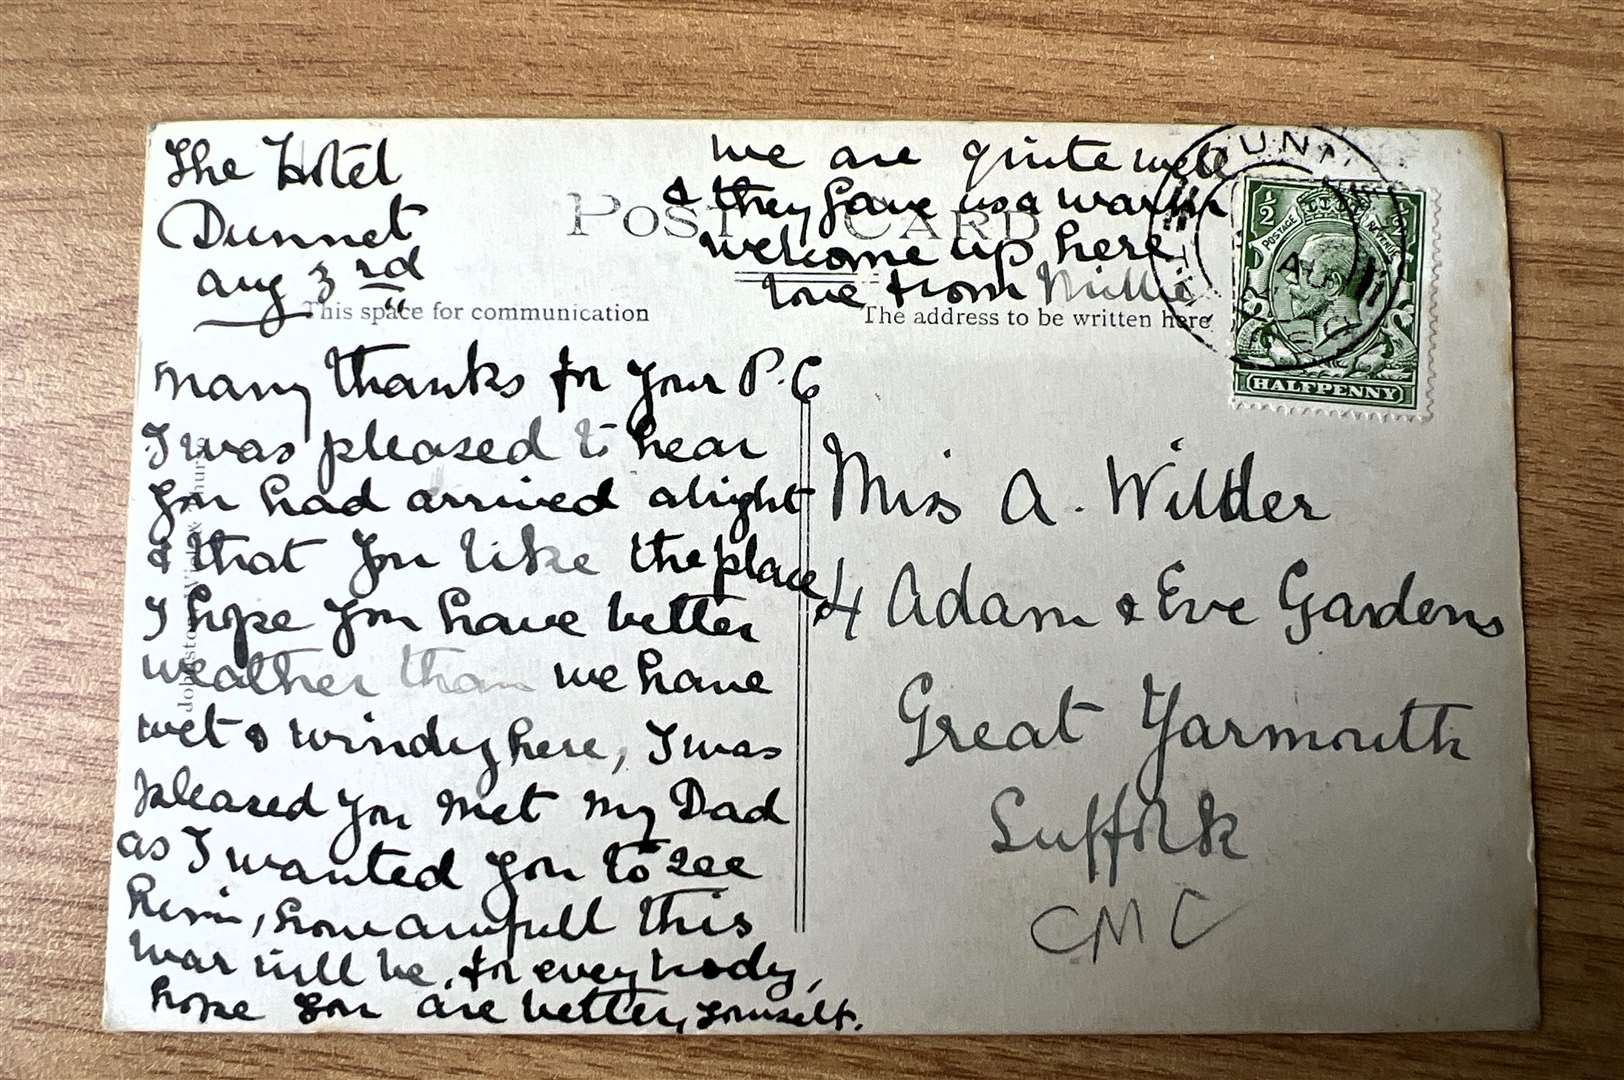 The Hotel
Dunnet
Aug 3rd
POST CARD
This space for communication
The address to be written here
Many thanks for your P.C
I was pleased to hear
you had arrived alright
& that you like the place
I hope you have better
weather than we have
wet & windy here, I was
pleased you met my Dad
as I wanted you to see
him, how awfull this
war will be, for every body,
hope you are better, yourself.
We are quite well
& they gave us a warm
welcome up here
love from Millie
HALFPENNY
POSTAGE
REVENUE
1/2
1/2
AU
Miss A. Wilder
4 Adam & Eve Gardens
Great Yarmouth
Suffolk
CMC